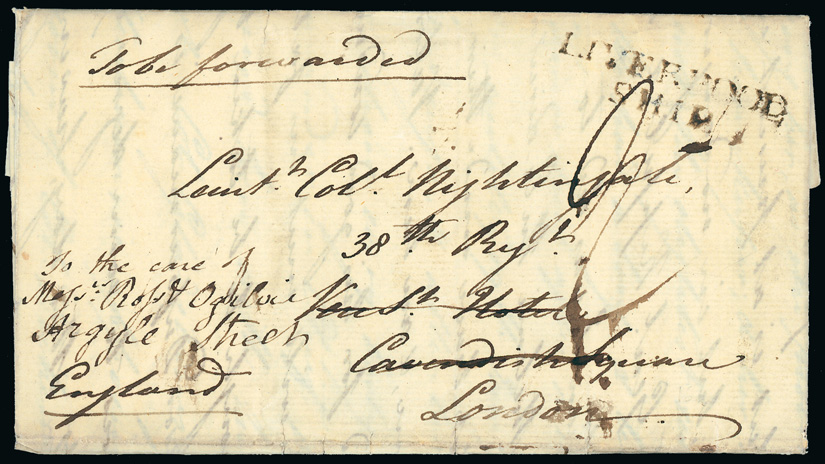 To be forwarded
LIVERPOOL
SHIP
Leiut.t Col.l Nightingale,
38th Reg.t
To the care of
Mess.rs Ross & Ogilvie
Argyle Street
England
Hotel
Cavendish Square
London